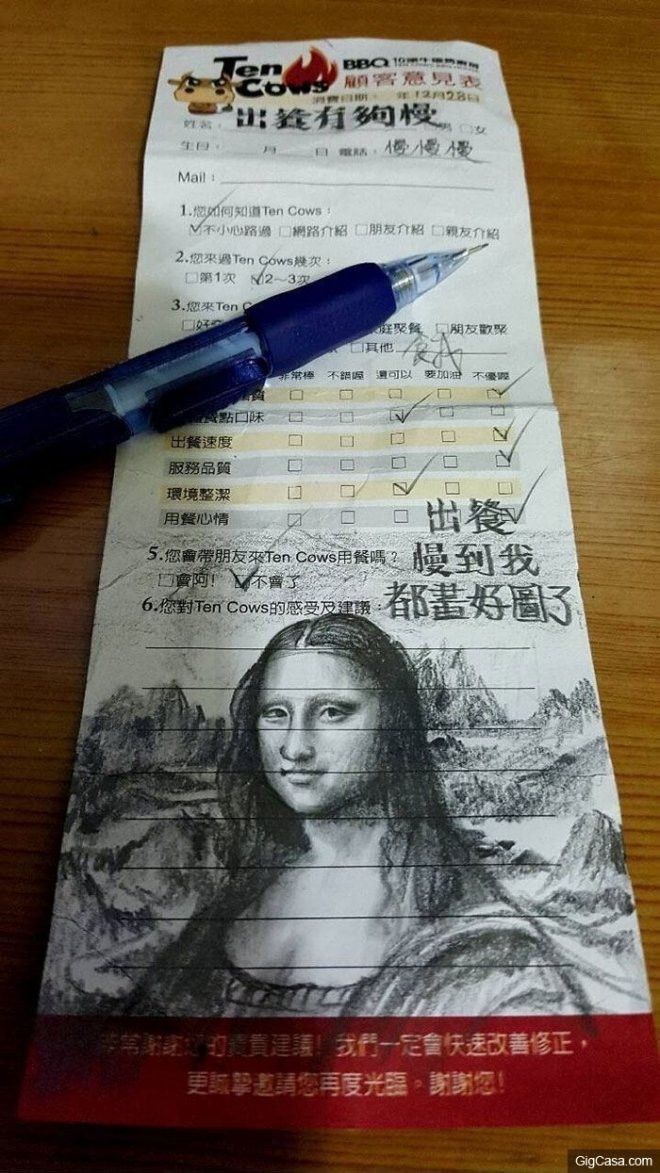 Ten Cows
BBQ
顧客意見表
消費日期: 年12月28日
姓名: 出餐有夠慢 男 □女
生日: 月 日 電話: 慢慢慢
Mail:
1.您如何知道Ten Cows:
☑不小心路過 □網路介紹 □朋友介紹 □親友介紹
2.您來過Ten Cows幾次:
□第1次 ☑2~3次
3.您來Ten C
□好奇 庭聚餐 □朋友歡聚
□其他 餓
非常棒 不錯喔 還可以 要加油 不優喔
質
餐點口味
出餐速度
服務品質
環境整潔
用餐心情
出餐
慢到我
都畫好圖了
5.您會帶朋友來Ten Cows用餐嗎?
□會阿! ☑不會了
6.您對Ten Cows的感受及建議:
非常謝謝您的寶貴建議! 我們一定會快速改善修正,
更誠摯邀請您再度光臨。謝謝您!
GigCasa.com